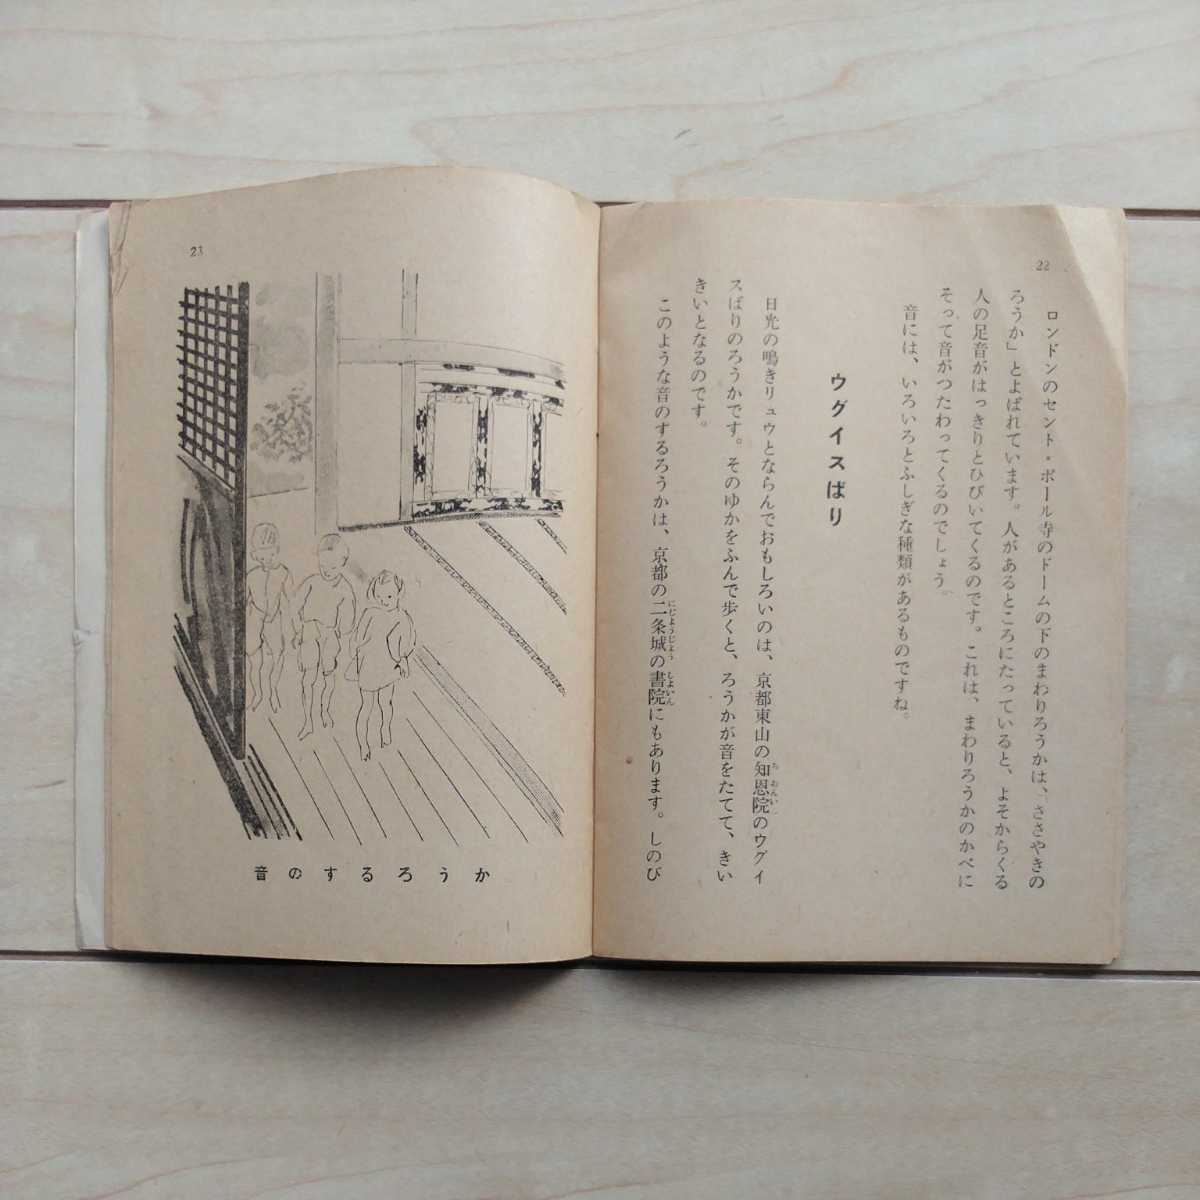 22
ロンドンのセント・ポール寺のドームの下のまわりろうかは、「ささやきの
ろうか」とよばれています。人があるところにたっていると、よそからくる
人の足音がはっきりとひびいてくるのです。これは、まわりろうかのかべに
そって音がつたわってくるのでしょう。
音には、いろいろとふしぎな種類があるものですね。
ウグイスばり
日光の鳴きリュウとならんでおもしろいのは、京都東山の知恩院のウグイ
スばりのろうかです。そのゆかをふんで歩くと、ろうかが音をたてて、きい
きいとなるのです。
このような音のするろうかは、京都の二条城の書院にもあります。しのび
23
音のするろうか